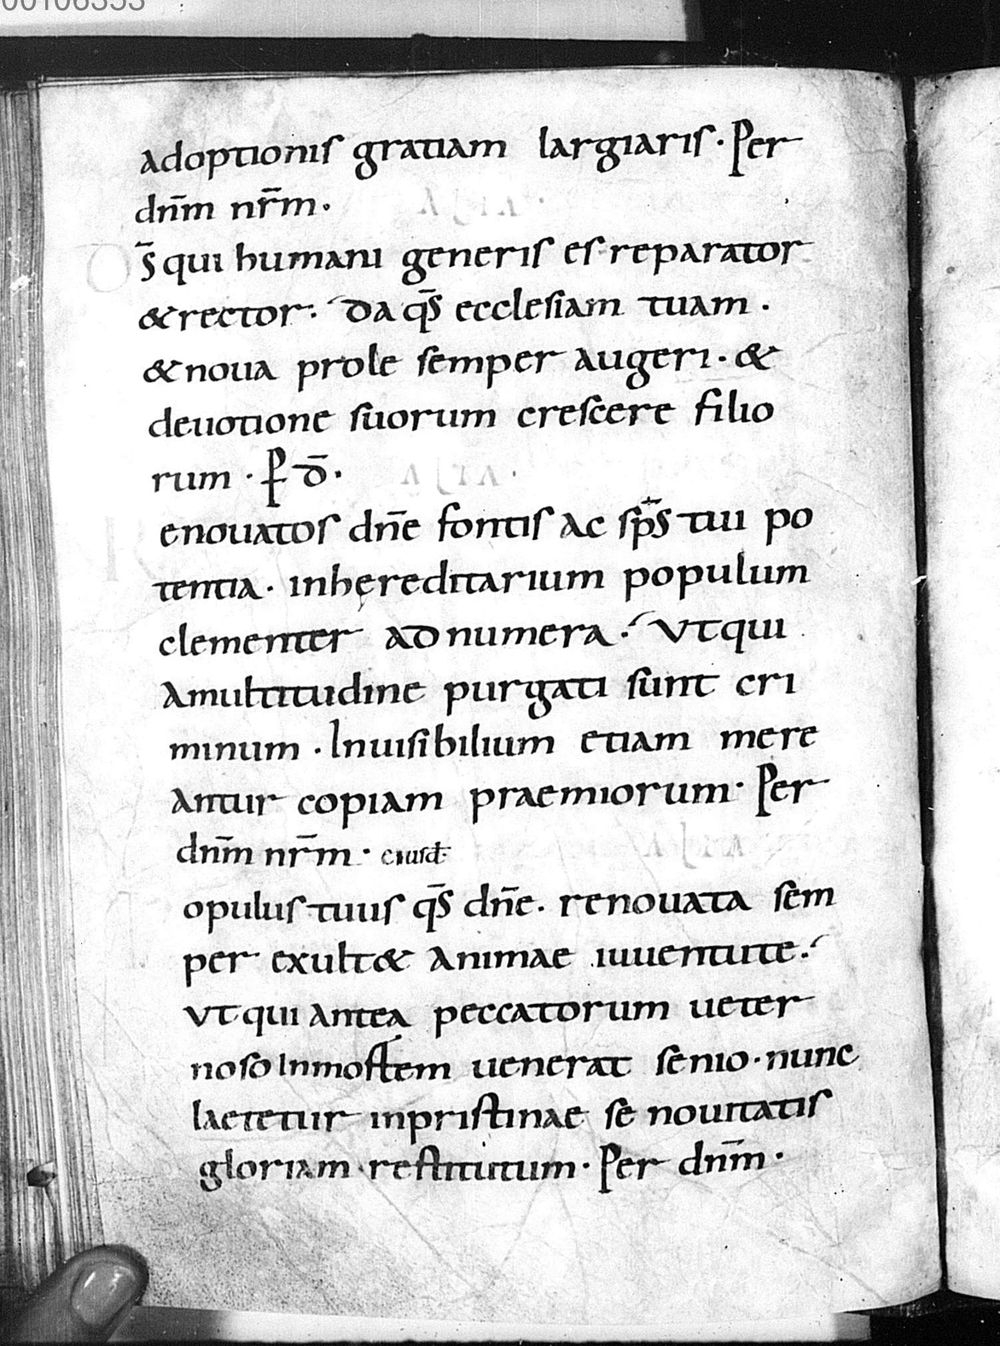 00106353
adoptionis gratiam largiaris · Per
dn̄m nr̄m.
S̄ qui humani generis es reparator
& rector · Da qs̄ ecclesiam tuam .
& noua prole semper augeri · &
deuotione suorum crescere filio
rum · P D̄ ·
enouatos dn̄e fontis ac sp̄s tui po
tentia . inhęreditarium populum
clementer adnumera · Ut qui
amultitudine purgati sunt cri
minum · Inuisibilium etiam mere
antur copiam praemiorum · Per
dn̄m nr̄m · eiusd
opulus tuus qs̄ dn̄e . renouata sem
per exult& animae iuuentute .
Ut qui antea peccatorum ueter
noso Inmortem uenerat senio · nunc
laetetur inpristinae se nouitatis
gloriam restitutum · Per dn̄m ·